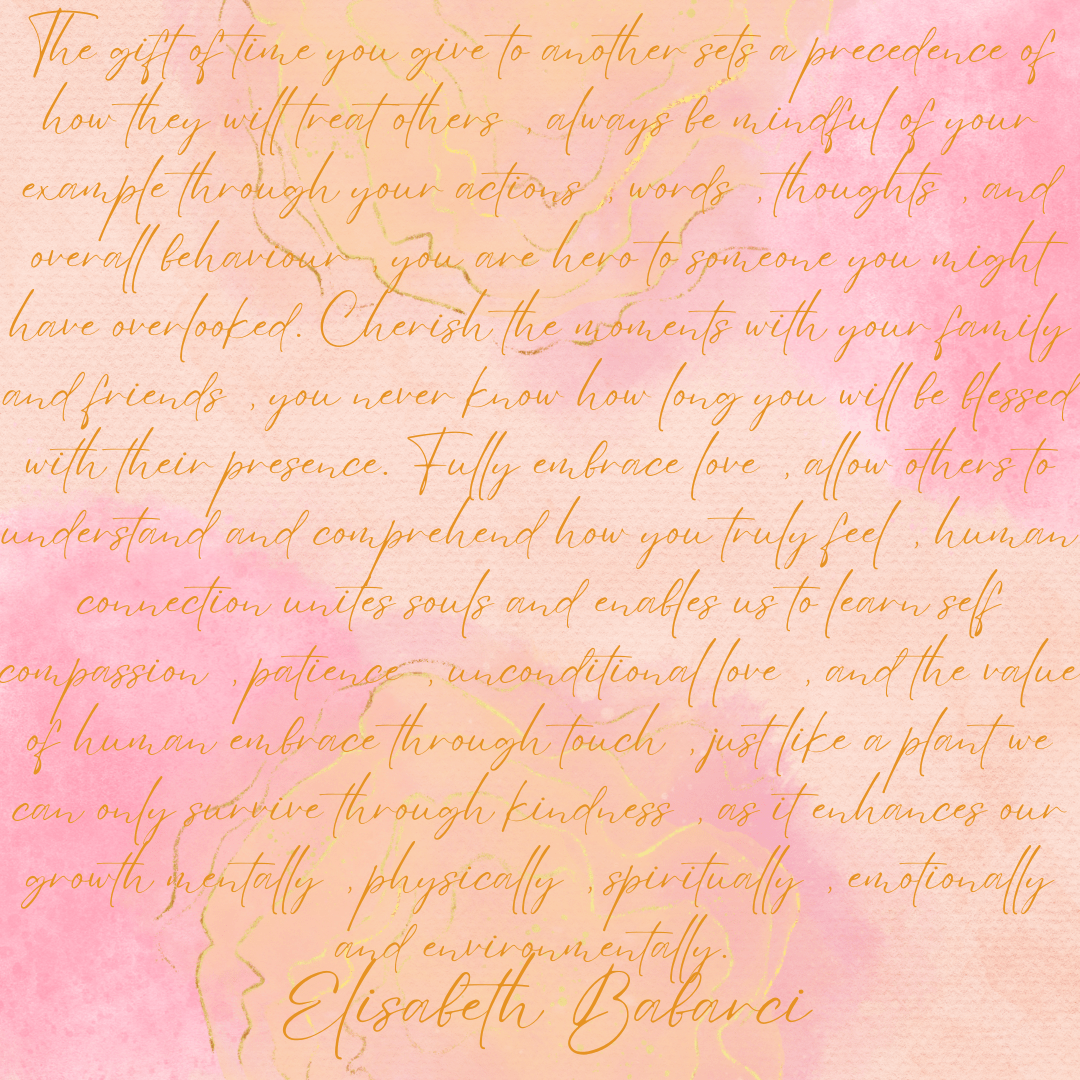 The gift of time you give to another sets a precedence of
how they will treat others , always be mindful of your
example through your actions , words , thoughts , and
overall behaviour you are hero to someone you might
have overlooked. Cherish the moments with your family
and friends , you never know how long you will be blessed
with their presence. Fully embrace love , allow others to
understand and comprehend how you truly feel , human
connection unites souls and enables us to learn self
compassion , patience , unconditional love , and the value
of human embrace through touch , just like a plant we
can only survive through kindness , as it enhances our
growth mentally , physically , spiritually , emotionally
and environmentally.
Elisabeth Babarci